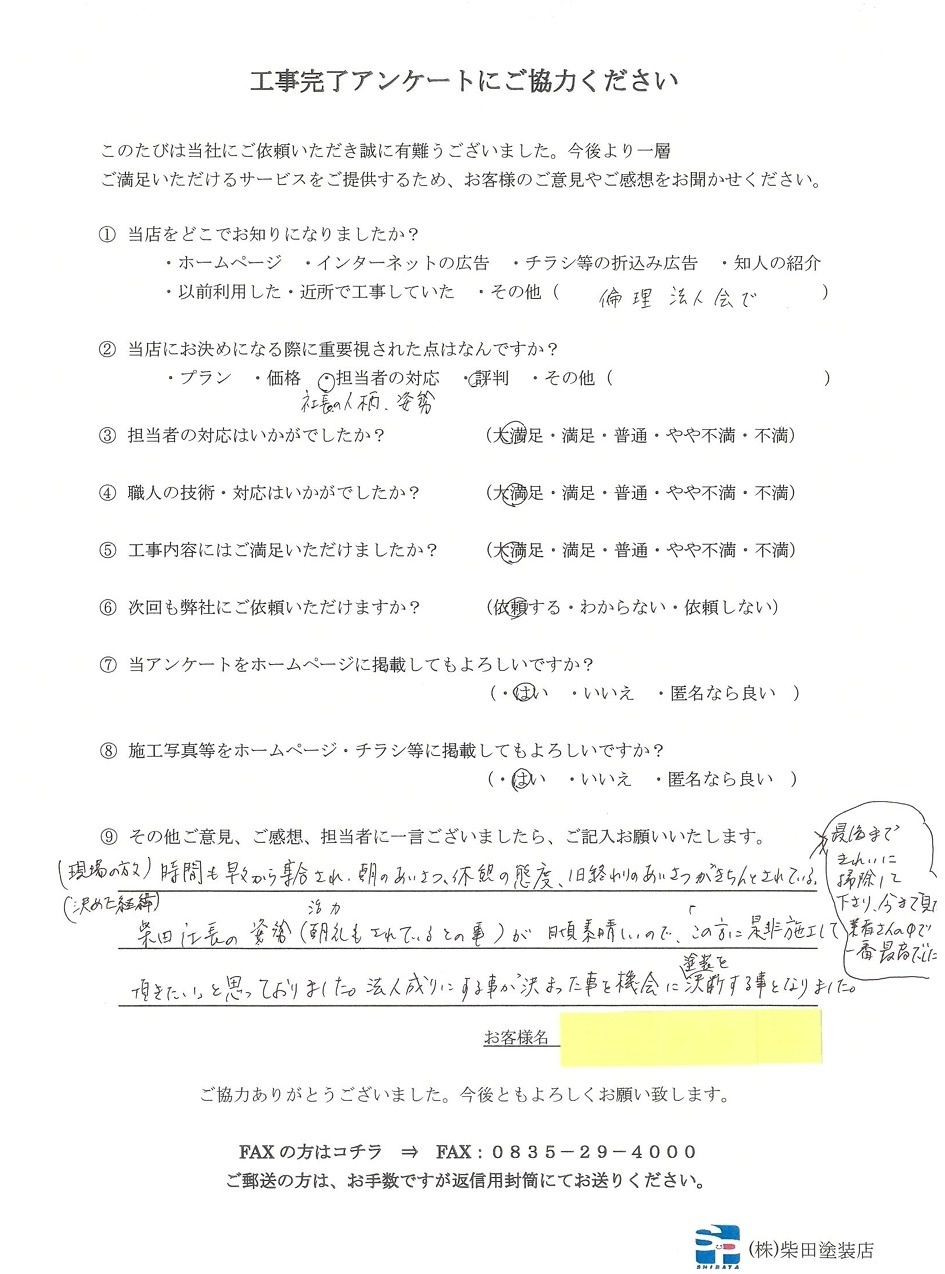 工事完了アンケートにご協力ください
このたびは当社にご依頼いただき誠に有難うございました。今後より一層
ご満足いただけるサービスをご提供するため、お客様のご意見やご感想をお聞かせください。
① 当店をどこでお知りになりましたか？
・ホームページ ・インターネットの広告 ・チラシ等の折込み広告 ・知人の紹介
・以前利用した・近所で工事していた ・その他（ 倫理法人会で ）
② 当店にお決めになる際に重要視された点はなんですか？
・プラン ・価格 ・担当者の対応 ・評判 ・その他（ ）
社長の人柄、姿勢
③ 担当者の対応はいかがでしたか？ （大満足・満足・普通・やや不満・不満）
④ 職人の技術・対応はいかがでしたか？ （大満足・満足・普通・やや不満・不満）
⑤ 工事内容にはご満足いただけましたか？ （大満足・満足・普通・やや不満・不満）
⑥ 次回も弊社にご依頼いただけますか？ （依頼する・わからない・依頼しない）
⑦ 当アンケートをホームページに掲載してもよろしいですか？
（・はい ・いいえ ・匿名なら良い ）
⑧ 施工写真等をホームページ・チラシ等に掲載してもよろしいですか？
（・はい ・いいえ ・匿名なら良い ）
⑨ その他ご意見、ご感想、担当者に一言ございましたら、ご記入お願いいたします。
(現場の方々) 時間も早くから集合され、朝のあいさつ、休憩の態度、1日終わりのあいさつがきちんとされている。
最後まで
きれいに
掃除して
下さり、今まで頂
業者さんの中で
一番最高でした
(決めた経緯)
活力
柴田社長の姿勢(朝礼もされているとの事)が日頃素晴しいので、「この方に是非施工して
塗装を
頂きたい」と思っておりました。法人成りにする事が決まった事を機会に決断する事となりました。
お客様名
ご協力ありがとうございました。今後ともよろしくお願い致します。
FAX の方はコチラ ⇒ FAX：０８３５－２９－４０００
ご郵送の方は、お手数ですが返信用封筒にてお送りください。
SHIBATA
(株)柴田塗装店